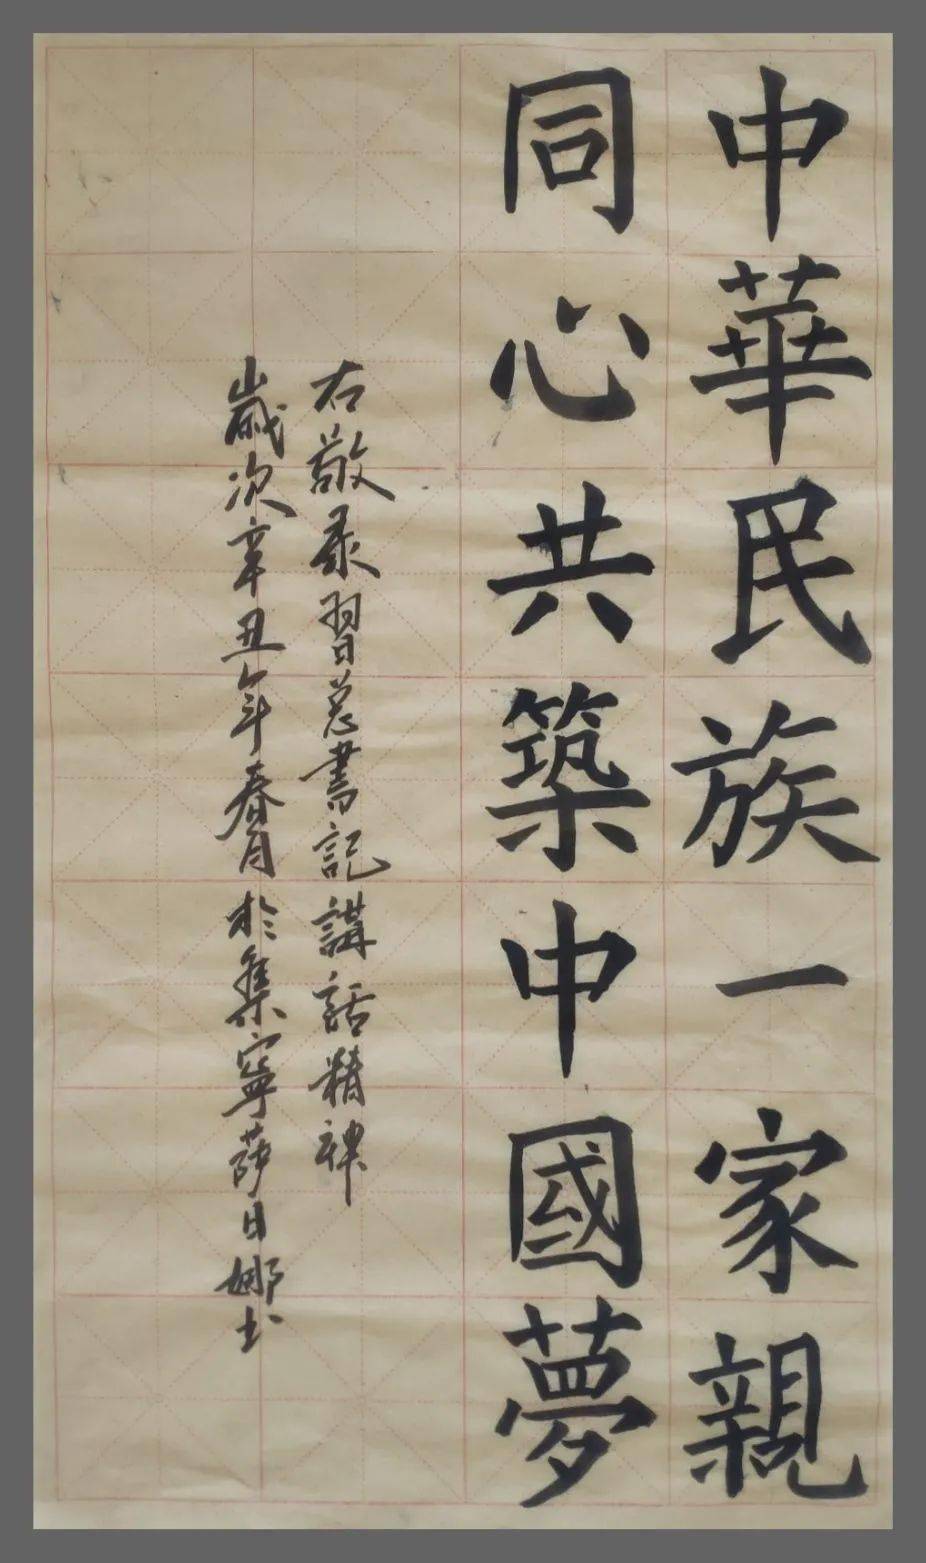 中華民族一家親
同心共築中國夢
右敬录習总書記講話精神
歲次辛丑年春月於集寧莎日娜书